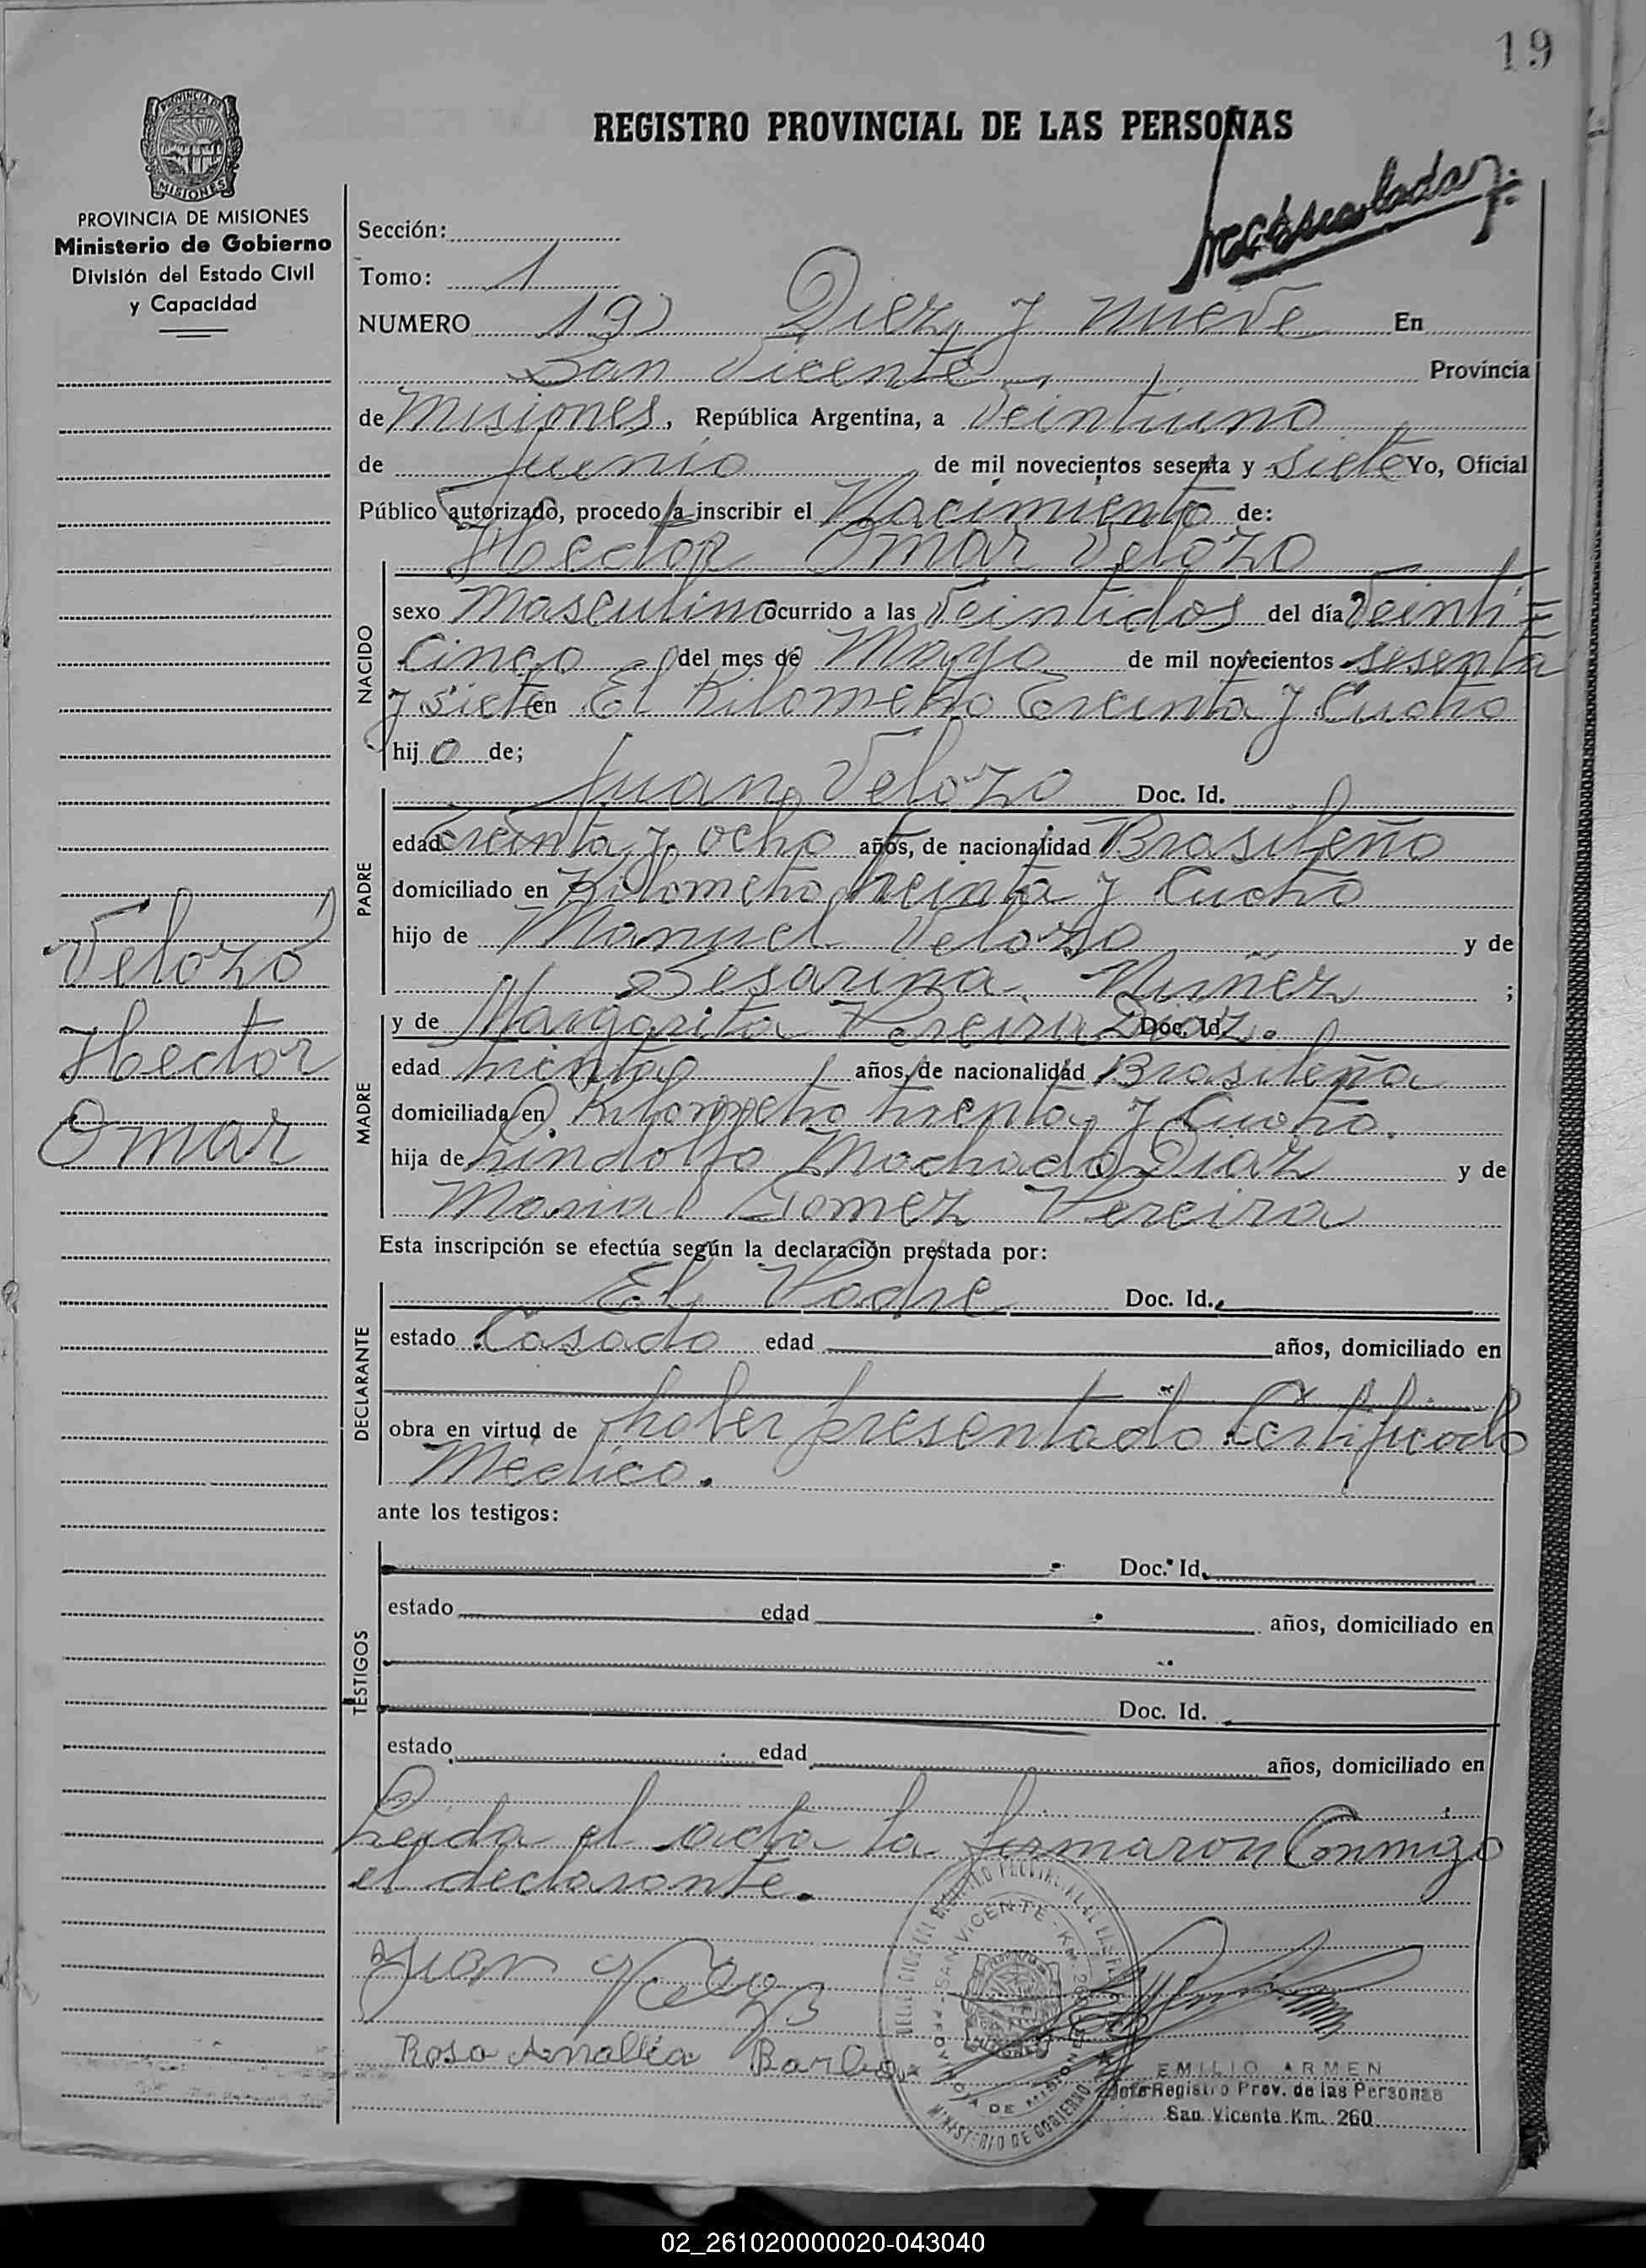 19
REGISTRO PROVINCIAL DE LAS PERSONAS
PROVINCIA DE MISIONES
Ministerio de Gobierno
División del Estado Civil
y Capacidad
Sección:
Tomo: 1
NUMERO 19) Diez y nueve En
San Vicente Provincia
de Misiones, República Argentina, a Veintiuno
de Junio de mil novecientos sesenta y siete Yo, Oficial
Público autorizado, procedo a inscribir el Nacimiento de:
Hector Omar Velozo
NACIDO
sexo Masculino ocurrido a las Veintidos del día Veinti=
cinco del mes de Mayo de mil novecientos sesenta
y siete en El Kilometro Treinta y Cuatro
hijo de;
PADRE
Juan Velozo Doc. Id.
edad Treinta y ocho años, de nacionalidad Brasileño
domiciliado en Kilometro treinta y Cuatro
hijo de Manuel Velozo y de
Sesarina Nuñez ;
MADRE
y de Margarita Pereira Diaz. Doc. Id.
edad treinta años, de nacionalidad Brasileña
domiciliada en Kilometro treinta y Cuatro.
hija de Lindolfo Machado Diaz y de
Maria Gomez Pereira
Velozo
Hector
Omar
Esta inscripción se efectúa según la declaración prestada por:
DECLARANTE
El Padre Doc. Id.
estado Casado edad años, domiciliado en
obra en virtud de haber presentado Certificado
Medico.
ante los testigos:
TESTIGOS
Doc. Id.
estado edad años, domiciliado en
Doc. Id.
estado edad años, domiciliado en
Leida el acta la firmaron Conmigo
el declarante.
Juan
Rosa Amallia
SAN VICENTE - Km. 260
PROVINCIA DE MISIONES
MINISTERIO DE GOBIERNO
EMILIO ARMEN
Jefe Registro Prov. de las Personas
San Vicente Km. 260
02_261020000020-043040